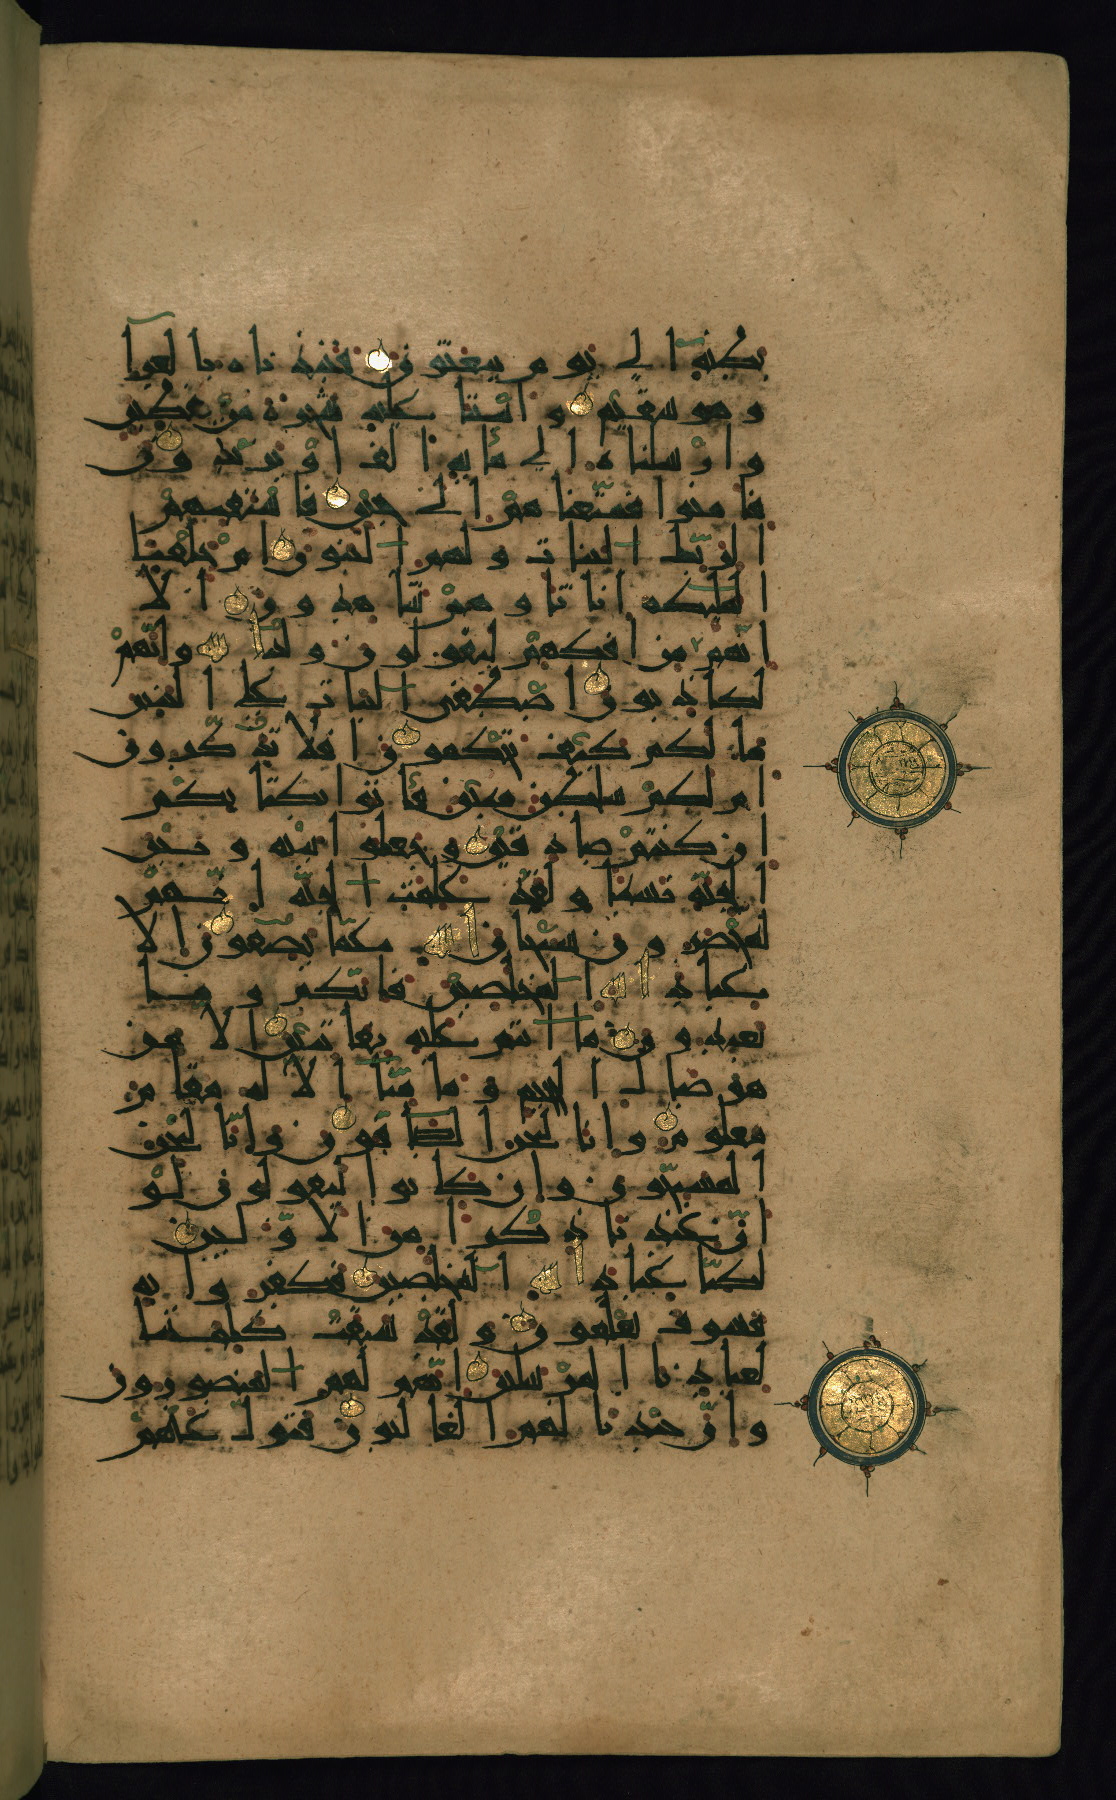 بطنه الى يوم يبعثون فنبذناه بالعرآ
وهو سقيم وانبتنا عليه شجرة من يقطين
وارسلناه الى مائة الف او يزيدون
فامنوا فمتعناهم الى حين فاستفتهم
الربك البنات ولهم البنون ام خلقنا
الملئكة اناثا وهم شاهدون الا
انهم من افكهم ليقولون ولد الله وانهم
لكاذبون اصطفى البنات على البنين
ما لكم كيف تحكمون افلا تذكرون
ام لكم سلطن مبين فاتوا بكتابكم
ان كنتم صادقين وجعلوا بينه وبين
الجنة نسبا ولقد علمت الجنة انهم
لمحضرون سبحان الله عما يصفون الا
عباد الله المخلصين فانكم وما
تعبدون ما انتم عليه بفاتنين الا من
هو صال الجحيم وما منا الا له مقام
معلوم وانا لنحن الصافون وانا لنحن
المسبحون وان كانوا ليقولون لو
ان عندنا ذكرا من الاولين
لكنا عباد الله المخلصين فكفروا به
فسوف يعلمون ولقد سبقت كلمتنا
لعبادنا المرسلين انهم لهم المنصورون
وان جندنا لهم الغالبون فتول عنهم